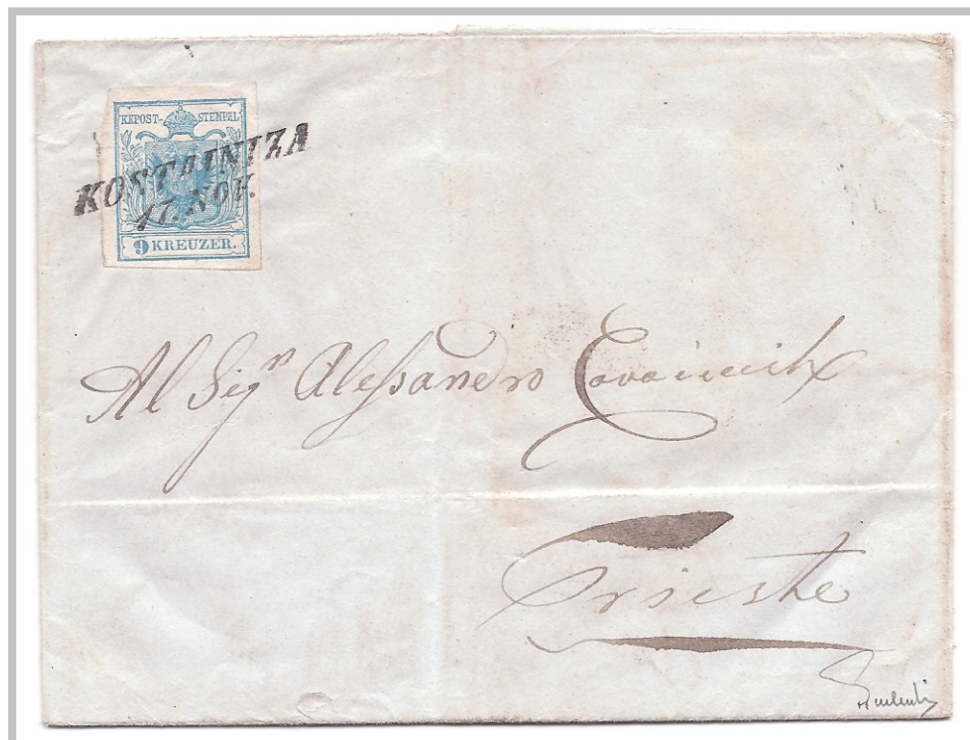 KKPOST-STEMPEL
KOSTAINIZA
17. NOV.
9 KREUZER.
Al Sigr Alessandro
Trieste